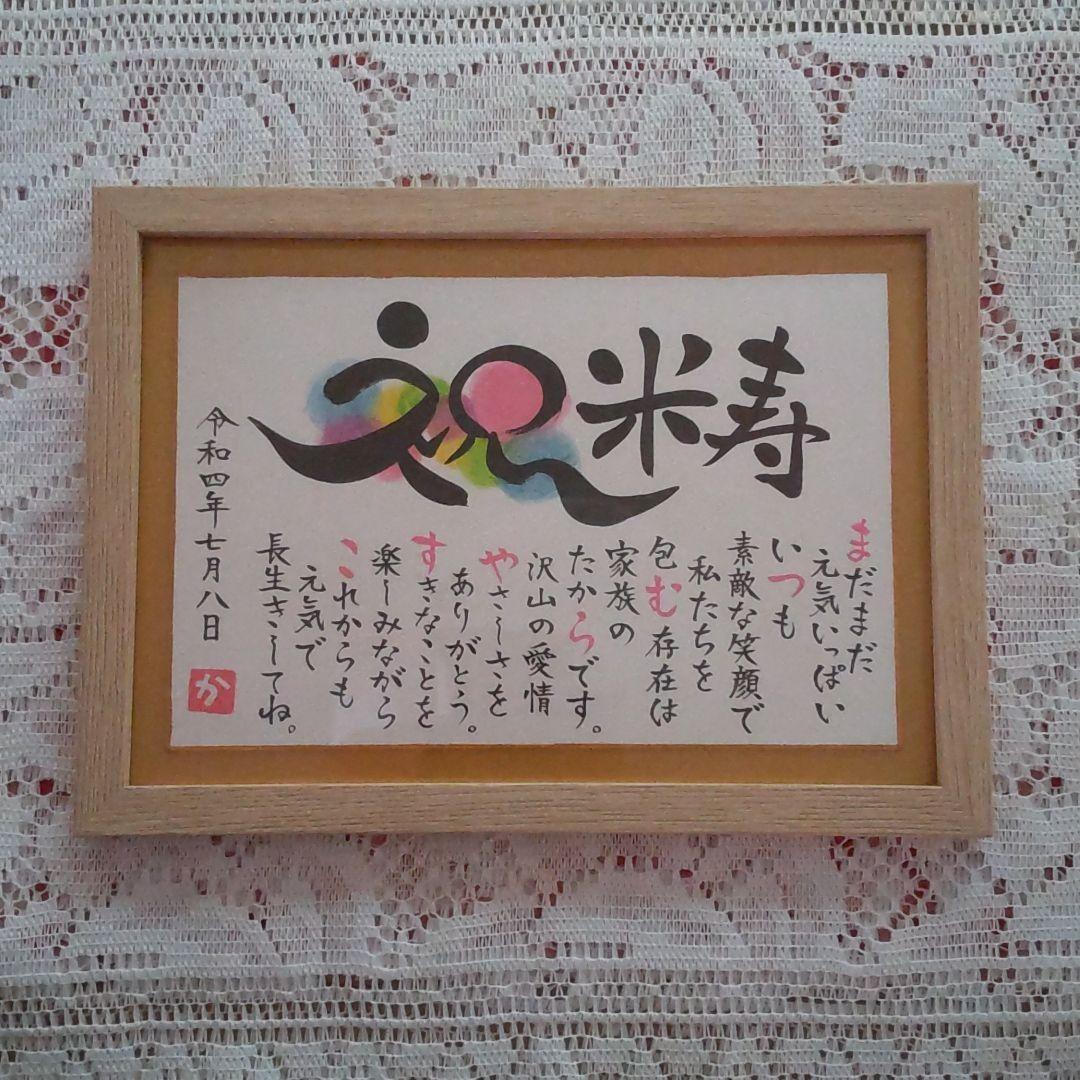 祝米寿
まだまだ
元気いっぱい
いつも
素敵な笑顔で
私たちを
包む存在は
家族の
たからです。
沢山の愛情
やさしさを
ありがとう。
すきなことを
楽しみながら
これからも
元気で
長生きしてね。
令和四年七月八日
か